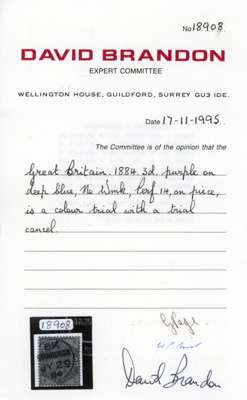 No 18908.
DAVID BRANDON
EXPERT COMMITTEE
WELLINGTON HOUSE, GUILDFORD, SURREY GU3 IDE.
Date 17-11-1995.
The Committee is of the opinion that the
Great Britain. 1884 3d. purple on
deep blue, No Wmk, Perf 14, on piece,
is a colour trial with a trial
cancel.
18908
JY 29
David Brandon